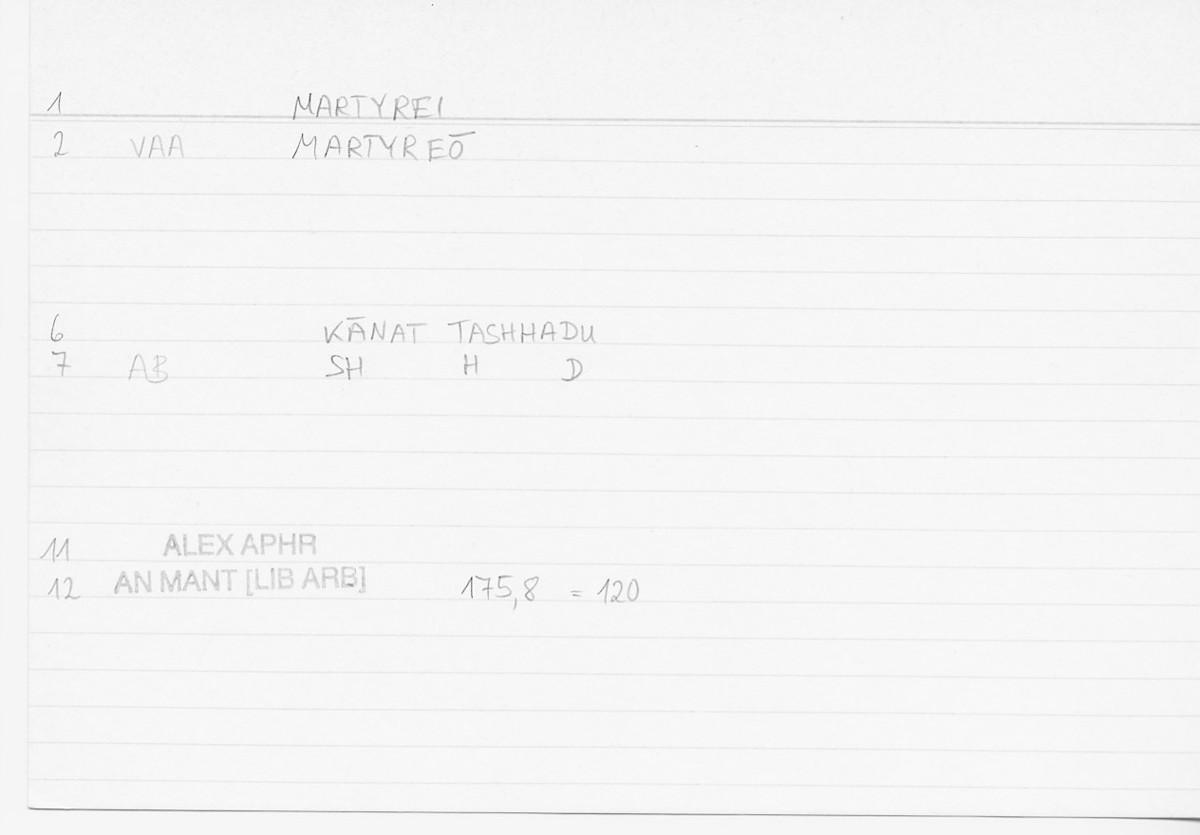 1 MARTYREI
2 VAA MARTYREŌ
6 KĀNAT TASHHADU
7 AB SH H D
11 ALEX APHR
12 AN MANT [LIB ARB] 175,8 = 120